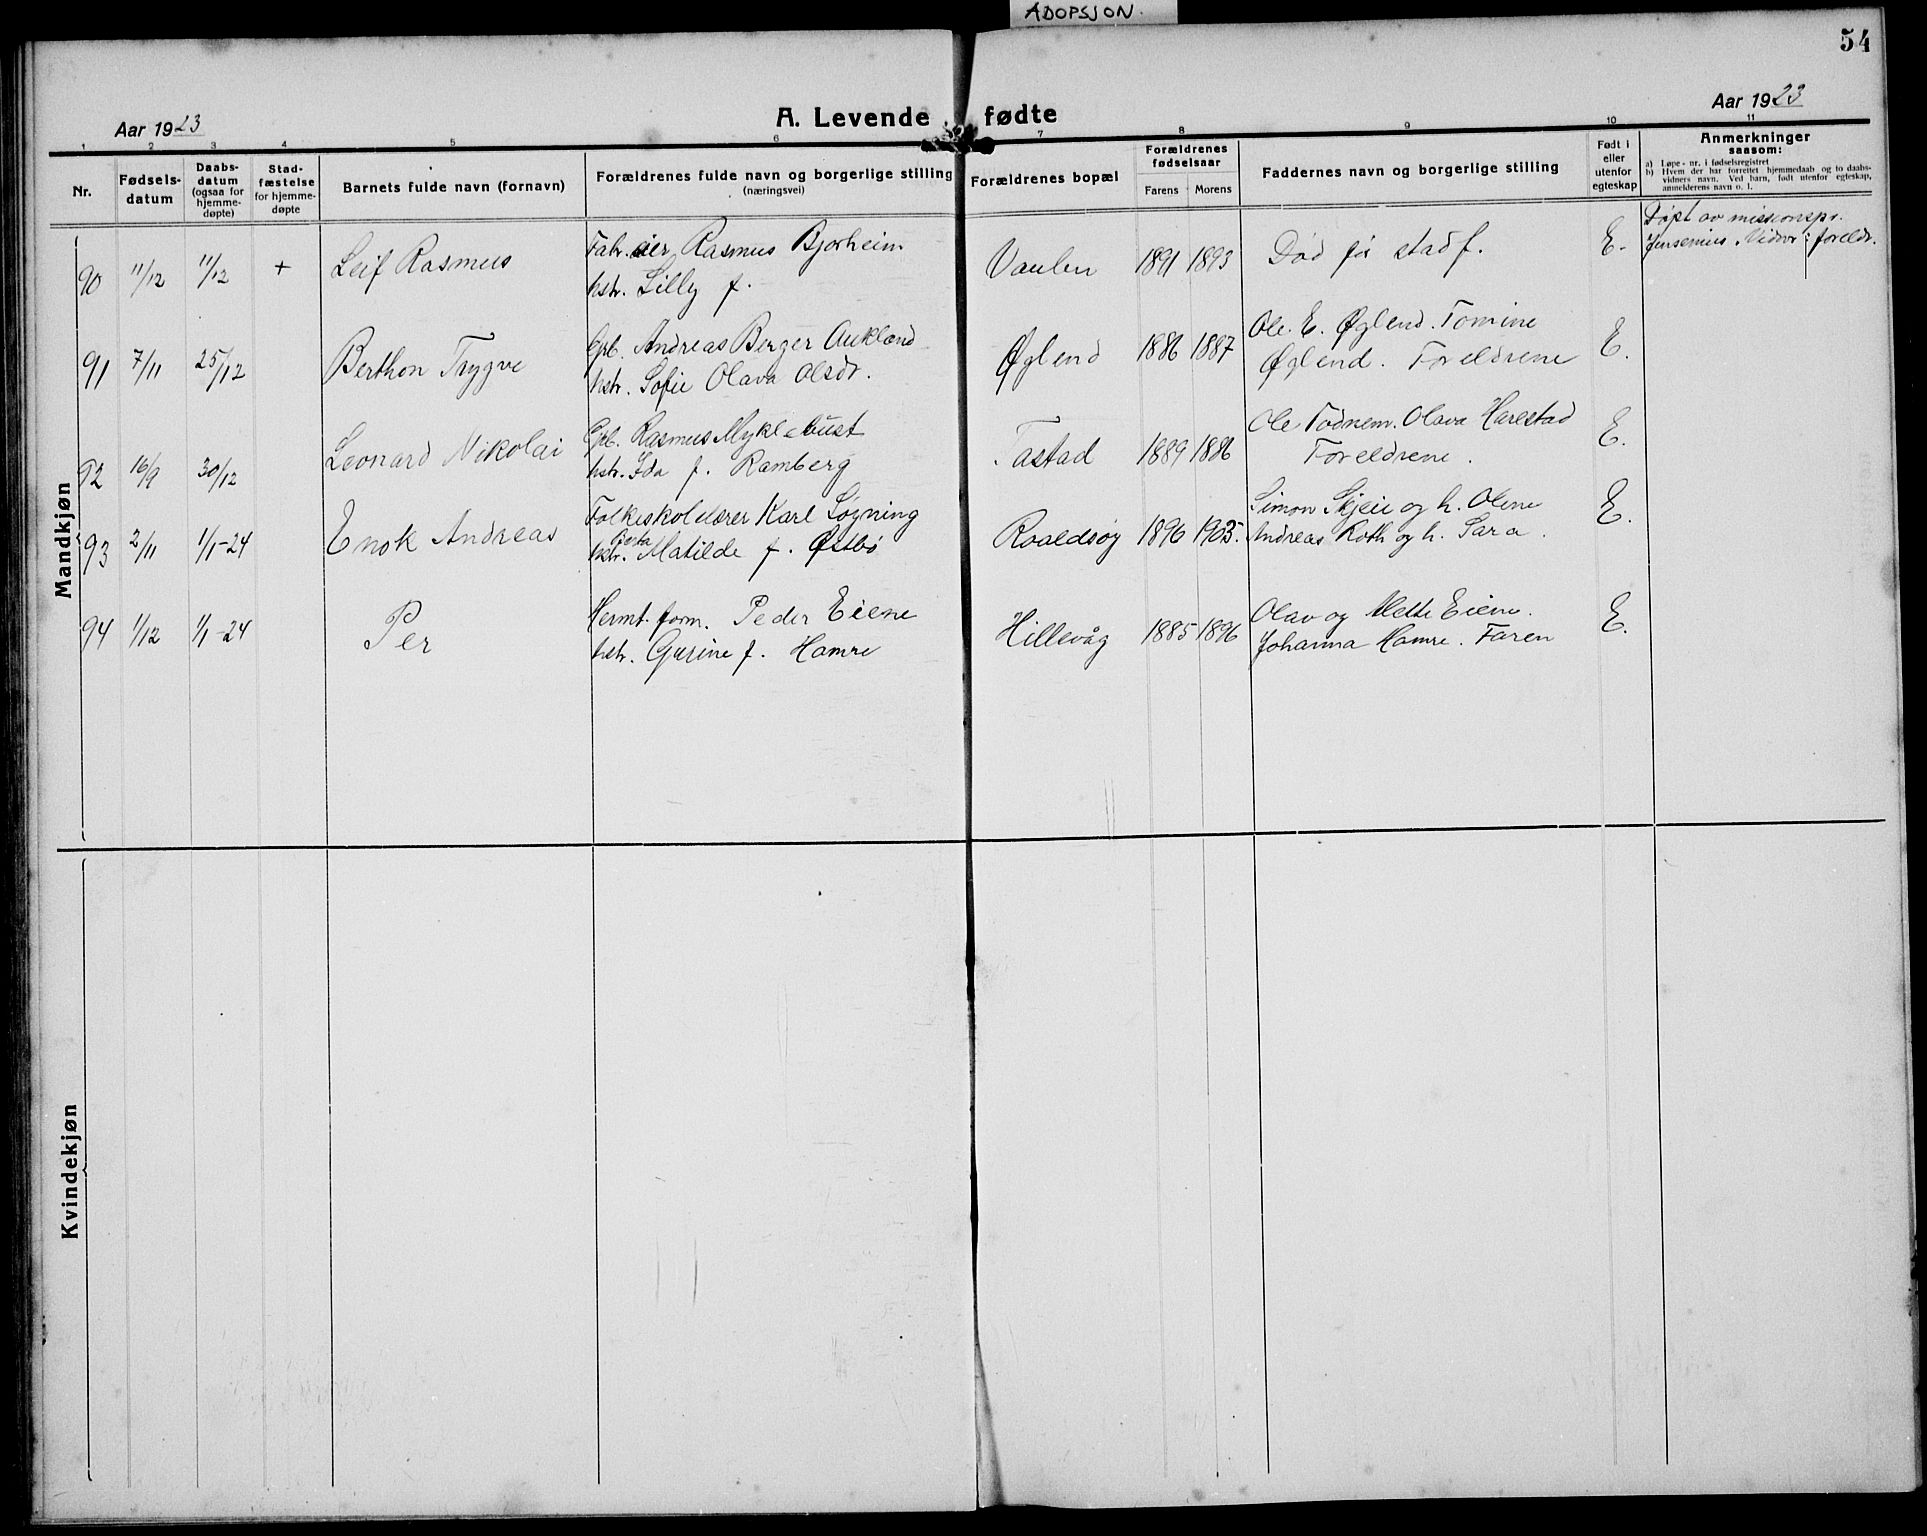 ADOPSJON.
54
Aar 1923
A. Levende fødte
Aar 1923
1 2 3 4 5 6 7 8 9 10 11
Nr.
Fødsels-
datum
Daabs-
datum
(ogsaa for
hjemme-
døpte)
Stad-
fæstelse
for hjemme-
døpte
Barnets fulde navn (fornavn)
Forældrenes fulde navn og borgerlige stilling
(næringsvei)
Forældrenes bopæl
Forældrenes
fødselsaar
Farens Morens
Faddernes navn og borgerlige stilling
Født i
eller
utenfor
egteskap
Anmerkninger
saasom:
a) Løpe-nr. i fødselsregistret
b) Hvem der har forrettet hjemmedaab og to daabs-
vidners navn. Ved barn, født utenfor egteskap,
anmelderens navn o. l.
Mandkjøn
90 11/12 11/12 + Leif Rasmus
Fabr. eier Rasmus Bjorheim
hstr. Lilly f.
Vaulen 1891 1893 Død før stadf. E.
Døpt av missionspr.
Jensenius. Vidner: foreldr.
91 7/11 25/12 Berthon Trygve
Gpb. Andreas Berger Aukland
hstr. Sofie Olava Olsdr.
Øglend 1886 1887
Ole E. Øglend. Tomine
Øglend. Foreldrene
E.
92 16/9 30/12 Leonard Nikolai
Gpb. Rasmus Myklebust
hstr. Ida f. Ramberg
Tastad 1889 1886
Ole Todnem. Olava Harestad
Foreldrene.
E.
93 2/11 1/1-24 Enok Andreas
Folkeskolelærer Karl Løgning
hstr. Berta Matilde f. Østbø
Roaldsøy 1896 1903.
Simon Skjeie og h. Olene
Andreas Roth og h. Sara.
E.
94 1/12 1/1-24 Per
Hermt. form. Peder Eiene
hstr. Gurine f. Hamre
Hillevåg 1885 1896
Olav og Mette Eiene.
Johanna Hamre. Faren
E.
Kvindekjøn